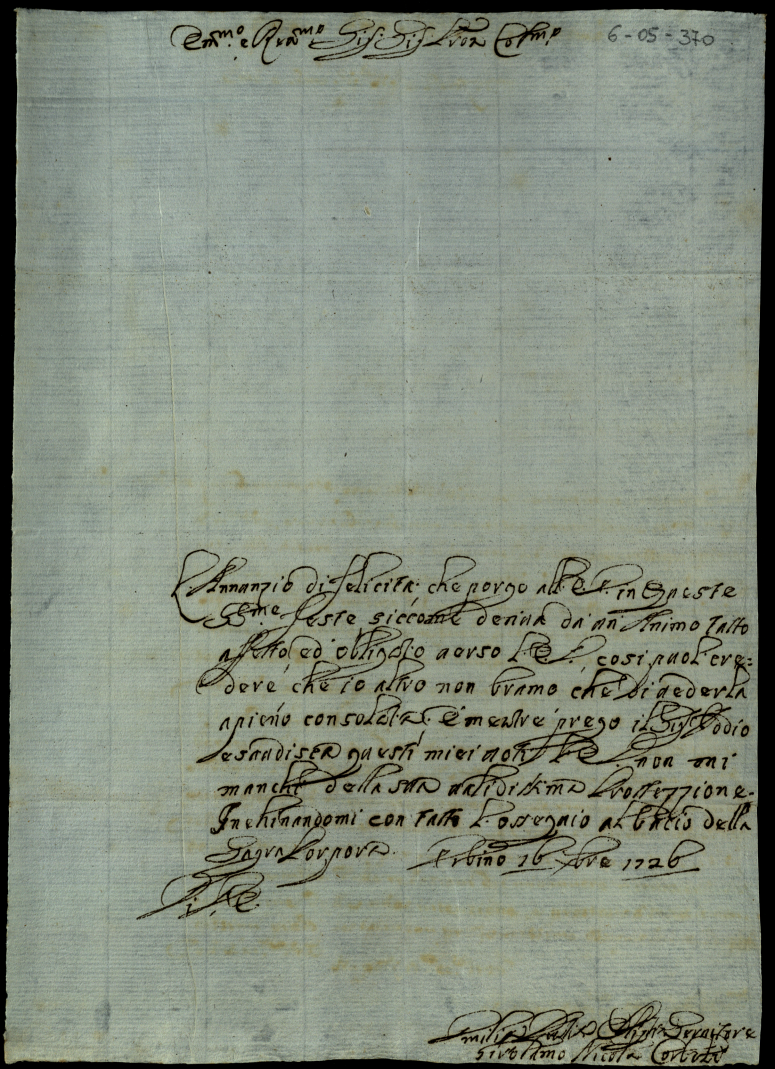 Em.mo e R.mo Sig.r Sig.r Pron Col.mo
6-05-370
L'Annunzio di felicità che porgo all'E. V. in queste
SS.me feste siccome deriua da un Animo tutto
affetto, ed obligato uerso l'E. V., cosi puol cre=
dere che io altro non bramo che di uederla
apieno consolata. E mentre prego il Sig.r Iddio
esaudisca questi miei uoti l'E. V. non mi
manchi della sua ualidissima Protezzione.
Inchinandomi con tutto l'ossequio al bacio della
Sagra Porpora. Urbino 16 Xbre 1726
Di V. E.
Umiliss. Deuotis. Oblig. Seruitore
Girolamo Nicola